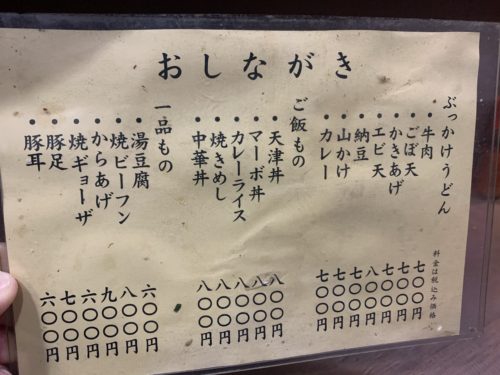 おしながき
ぶっかけうどん
・牛肉 七〇〇円
・ごぼ天 七〇〇円
・かきあげ 七〇〇円
・エビ天 八〇〇円
・納豆 七〇〇円
・山かけ 七〇〇円
・カレー 七〇〇円
料金は税込み価格
ご飯もの
・天津丼 八〇〇円
・マーボ丼 八〇〇円
・カレーライス 八〇〇円
・焼きめし 八〇〇円
・中華丼 八〇〇円
一品もの
・湯豆腐 六〇〇円
・焼ビーフン 八〇〇円
・からあげ 九〇〇円
・焼ギョーザ 六〇〇円
・豚足 七〇〇円
・豚耳 六〇〇円